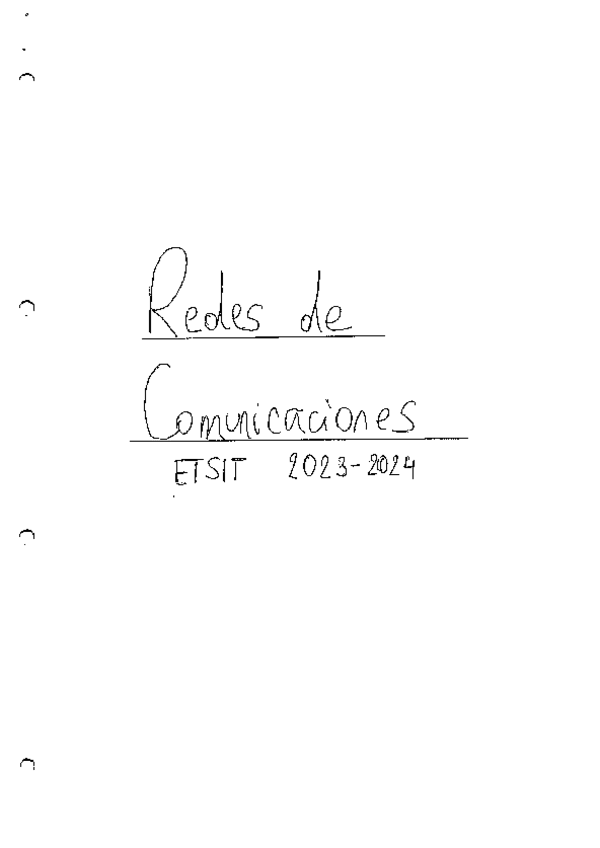 Redes de
Comunicaciones
ETSIT 2023-2024